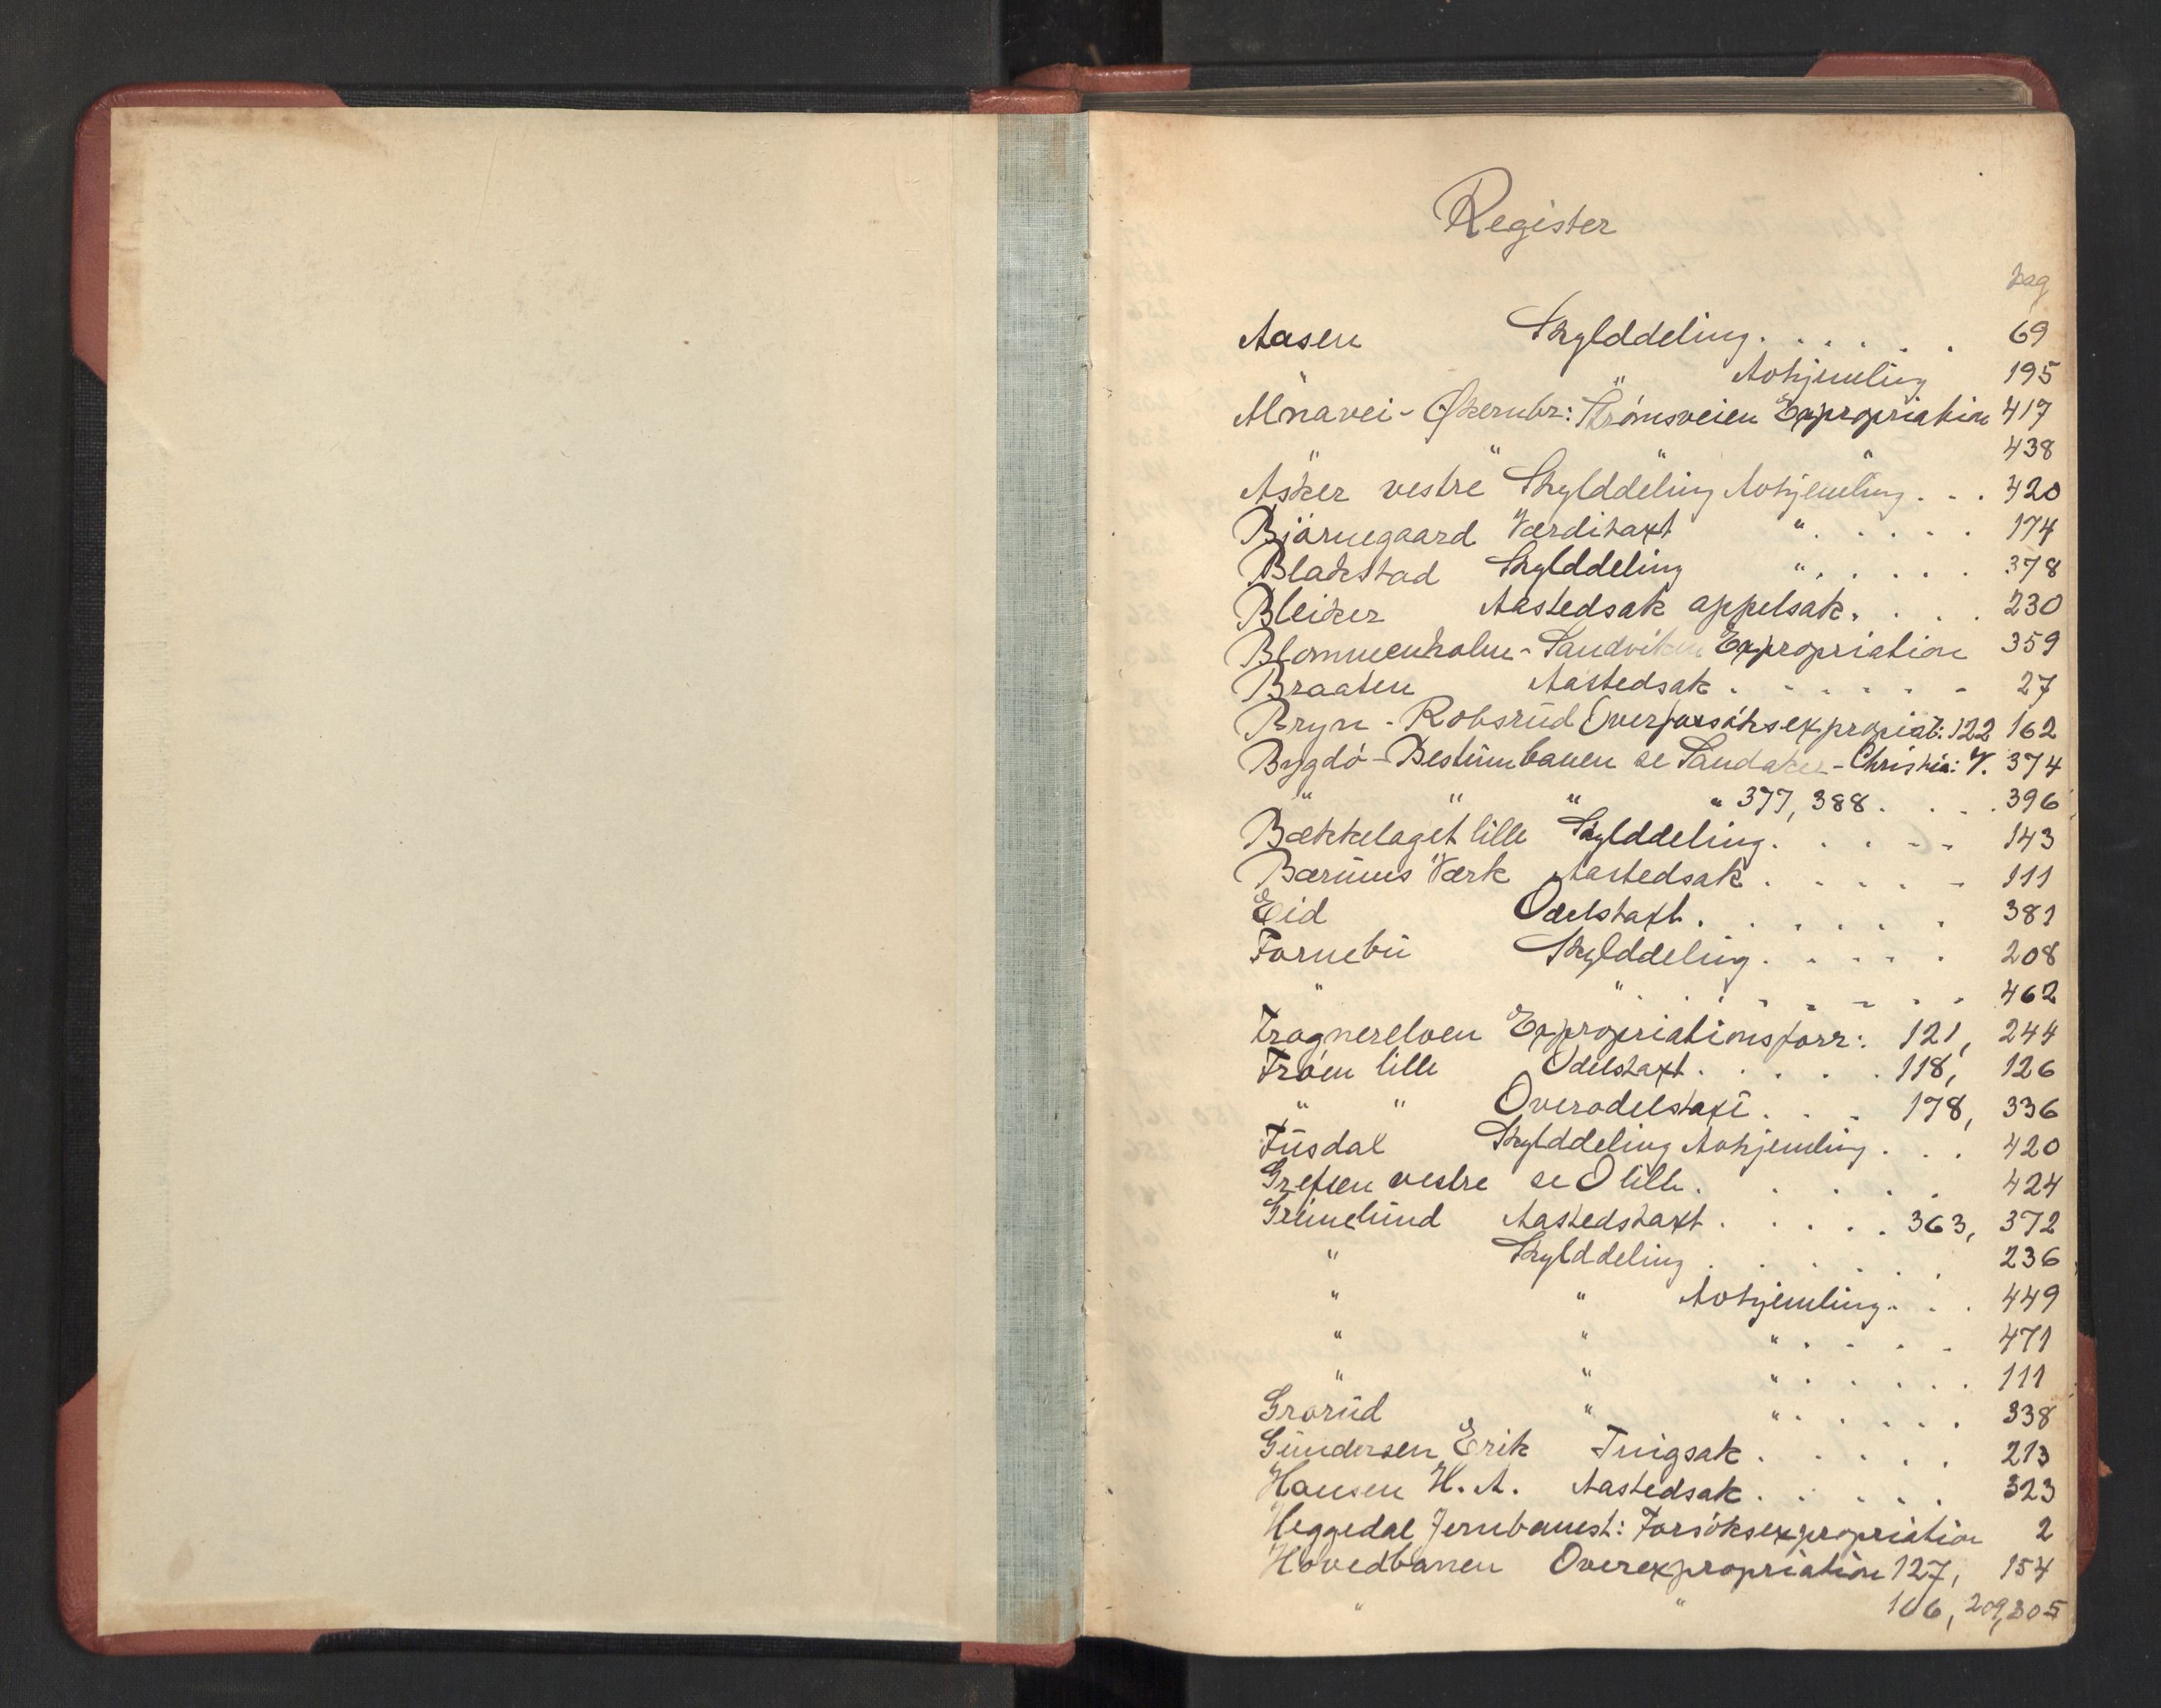 Register
pag
Aasen Skylddeling. . . . . . 69
" " Avhjemling 195
Alnavei - Økernbr: Strömsveien Expropriation 417
" " " " 438
Asker vestre Skylddeling Avhjemling. . . 420
Bjørnegaard Værditaxt " . . . . . 174
Blakstad Skylddeling " . . . . . 378
Bleiker Aastedsak appelsak. . . . 230
Blommenholm - Sandviken Expropriation 359
Braaten Aastedsak . . . . . . - 27
Bryn - Robsrud Overforsöksexpropriat: 122 162
Bygdö - Bestumbanen se Sandaker - Christia: V. 374
" " " " 377, 388. . . . 396
Bækkelaget lille Skylddeling. . . . . 143
Bærums Værk Aastedsak . . . . . 111
Eid Odelstaxt. . . . . . . 381
Fornebu Skylddeling. . . . . 208
" " . . . . . . . . 462
Frognerelven Expropriationsforr: 121, 244
Fröen lille Odelstaxt. . . . . . 118, 126
" " Overodelstaxt. . . . 178, 336
Fusdal Skylddeling Avhjemling . . . 420
Grefsen vestre se O lille. . . . . . 424
Grünelund Aastedstaxt . . . . . 363, 372
" Skylddeling . . . . . . 236
" " Avhjemling. . . 449
" " " . . . . . 471
" " " . . . . . . 111
Grorud " " . . . . . . 338
Gundersen Erik Tingsak . . . . . . 213
Hansen H. A. Aastedsak . . . . . . 323
Heggedal Jernbanest: Forsöksexpropriation 2
Hovedbanen Overexpropriation 127, 154
" " 166, 209, 305